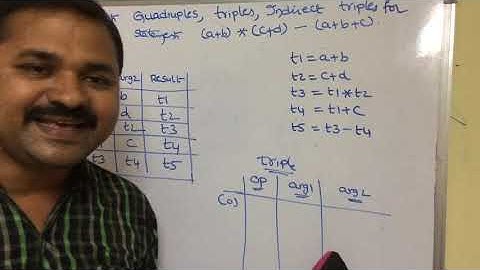 Quadruples, triples, Indirect triples for
(a+b) * (c+d) - (a+b+c).
t1 = a+b
t2 = c+d
t3 = t1*t2
t4 = t1+c
t5 = t3-t4
arg2 Result
b t1
d t2
t2 t3
c t4
t3 t4 t5
Triple
op arg1 arg2
(0)